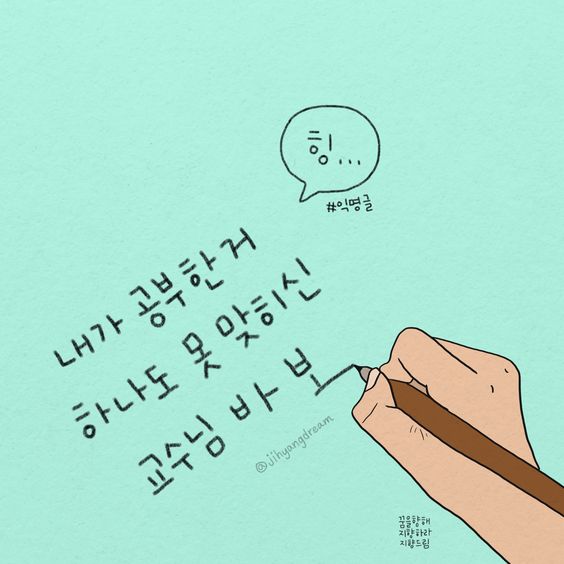 힝...
#익명글
내가 공부한거
하나도 못 맞히신
교수님 바 보
@jihyangdream
꿈을향해
지향하라
지향드림